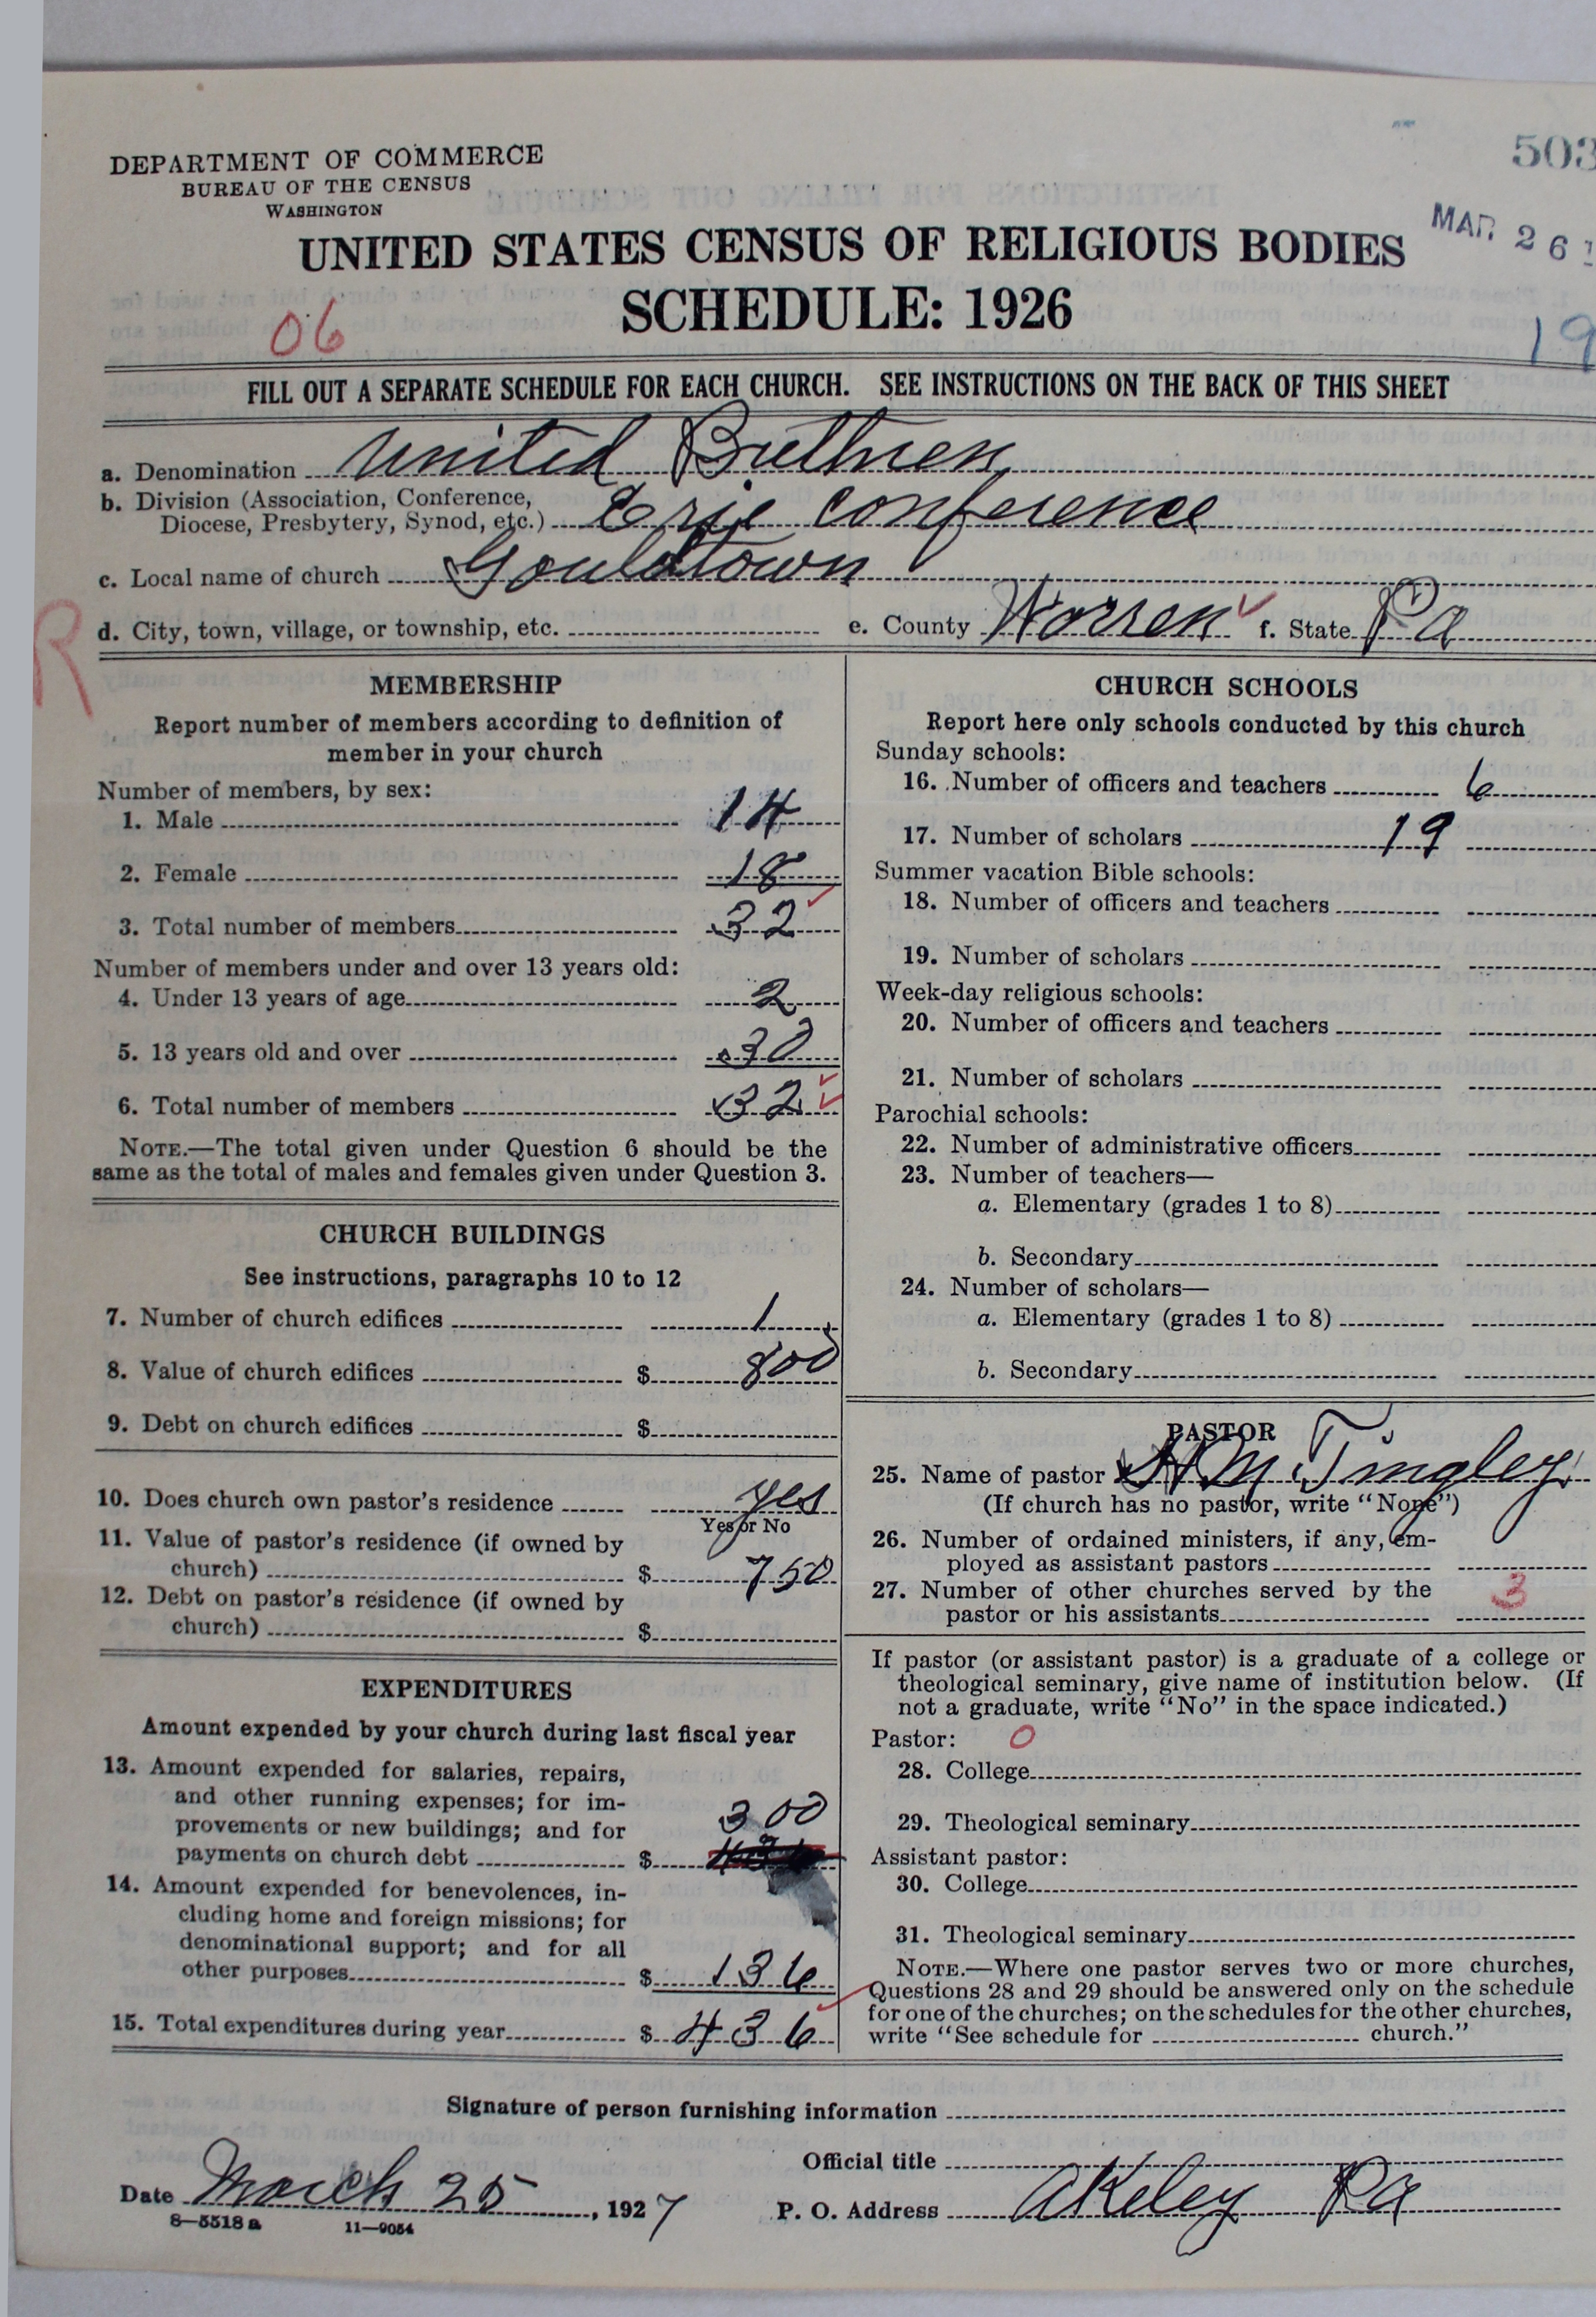 503
DEPARTMENT OF COMMERCE
BUREAU OF THE CENSUS
WASHINGTON
MAR 26 1
UNITED STATES CENSUS OF RELIGIOUS BODIES
SCHEDULE: 1926
06
19
FILL OUT A SEPARATE SCHEDULE FOR EACH CHURCH. SEE INSTRUCTIONS ON THE BACK OF THIS SHEET
a. Denomination United Brethren
b. Division (Association, Conference,
Diocese, Presbytery, Synod, etc.) Erie Conference
c. Local name of church Gouldtown
R
d. City, town, village, or township, etc. e. County Warren f. State Pa
MEMBERSHIP
Report number of members according to definition of
member in your church
Number of members, by sex:
1. Male 14
2. Female 18
3. Total number of members 32
Number of members under and over 13 years old:
4. Under 13 years of age 2
5. 13 years old and over 30
6. Total number of members 32
NOTE.—The total given under Question 6 should be the
same as the total of males and females given under Question 3.
CHURCH BUILDINGS
See instructions, paragraphs 10 to 12
7. Number of church edifices 1
8. Value of church edifices $ 800
9. Debt on church edifices $
10. Does church own pastor's residence yes
Yes or No
11. Value of pastor's residence (if owned by
church) $ 750
12. Debt on pastor's residence (if owned by
church) $
EXPENDITURES
Amount expended by your church during last fiscal year
13. Amount expended for salaries, repairs,
and other running expenses; for im-
provements or new buildings; and for 300
payments on church debt $
14. Amount expended for benevolences, in-
cluding home and foreign missions; for
denominational support; and for all
other purposes $ 136
15. Total expenditures during year $ 436
CHURCH SCHOOLS
Report here only schools conducted by this church
Sunday schools:
16. Number of officers and teachers 6
17. Number of scholars 19
Summer vacation Bible schools:
18. Number of officers and teachers
19. Number of scholars
Week-day religious schools:
20. Number of officers and teachers
21. Number of scholars
Parochial schools:
22. Number of administrative officers
23. Number of teachers—
a. Elementary (grades 1 to 8)
b. Secondary
24. Number of scholars—
a. Elementary (grades 1 to 8)
b. Secondary
PASTOR
25. Name of pastor H M Tingley
(If church has no pastor, write "None")
26. Number of ordained ministers, if any, em-
ployed as assistant pastors
27. Number of other churches served by the 3
pastor or his assistants
If pastor (or assistant pastor) is a graduate of a college or
theological seminary, give name of institution below. (If
not a graduate, write "No" in the space indicated.)
Pastor: 0
28. College
29. Theological seminary
Assistant pastor:
30. College
31. Theological seminary
NOTE.—Where one pastor serves two or more churches,
Questions 28 and 29 should be answered only on the schedule
for one of the churches; on the schedules for the other churches,
write "See schedule for church."
Signature of person furnishing information
Official title
Date March 25, 1927 P. O. Address Akeley Pa
8—5518a 11—9054